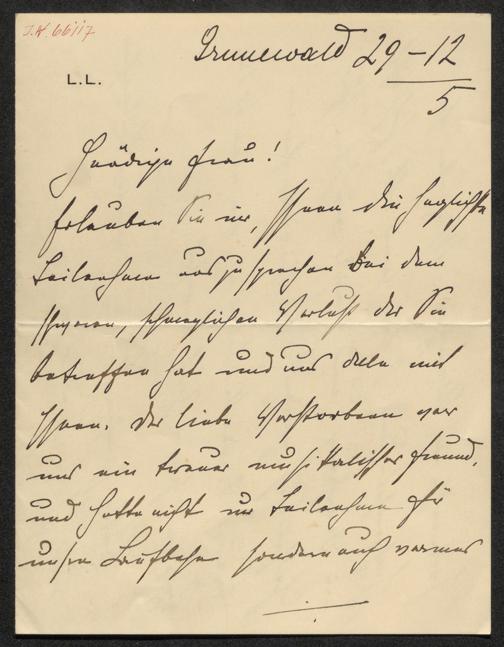 I.N. 66117
Grunewald 29-12
5
L.L.
Gnädige Frau!
Erlauben Sie mir, Ihnen die herzlichste
Teilnahme auszusprechen bei dem
schweren, schmerzlichen Verlust der Sie
betroffen hat und uns alle mit
Ihnen. Der liebe Verstorbene war
uns ein treuer musikalischer Freund,
und hatte nicht nur Teilnahme für
unsre Laufbahn sondern auch warmes